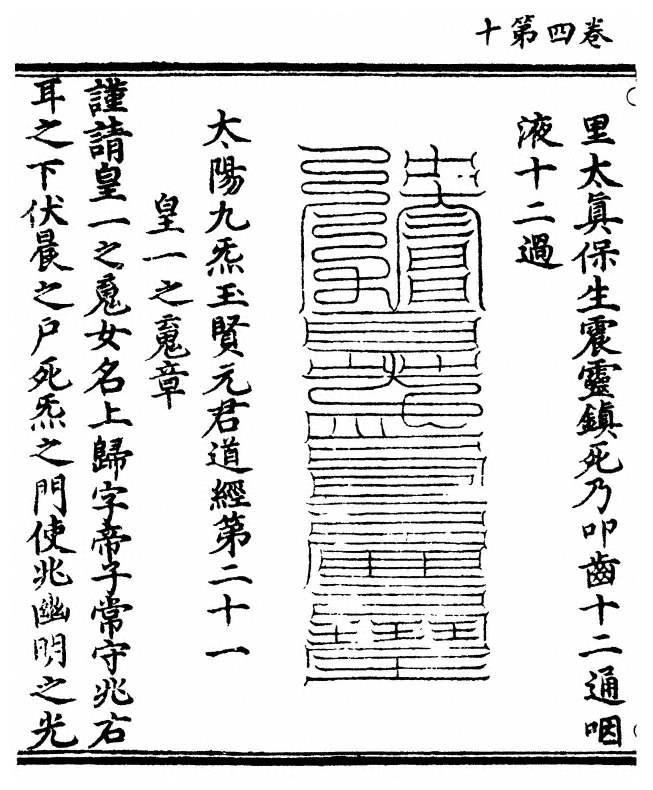 卷四第十
里太眞保生震靈鎭死乃叩齒十二通咽
液十二過
太陽九炁玉賢元君道經第二十一
皇一之䰟章
謹請皇一之䰟女名上歸字帝子常守兆右
耳之下伏晨之戶死炁之門使兆幽明之光